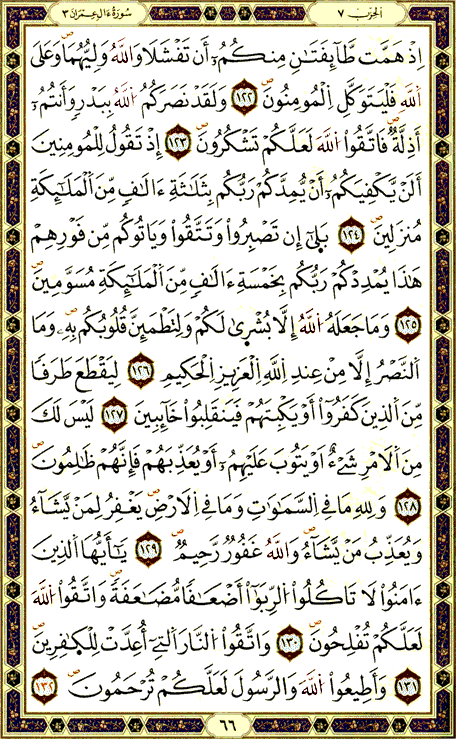 الحِزْب ٧
سُورَةُ ءَالِ عِمْرَانَ ٣
إِذْ هَمَّت طَّآئِفَتَـٰنِ مِنكُمُۥٓ أَن تَفْشَلَا وَاللَّهُ وَلِيُّهُمَا وَعَلَى
اَللَّهِ فَلْيَتَوَكَّلِ اِلْمُومِنُونَ ١٢٢ وَلَقَدْ نَصَرَكُمُ اُللَّهُ بِبَدْرٍ وَأَنتُمُۥٓ
أَذِلَّةٌ فَاتَّقُوا۟ اُللَّهَ لَعَلَّكُمْ تَشْكُرُونَ ١٢٣ إِذْ تَقُولُ لِلْمُومِنِينَ
أَلَنْ يَّكْفِيَكُمُۥٓ أَنْ يُّمِدَّكُمْ رَبُّكُم بِثَلَـٰثَةِ ءَالَـٰفٍ مِّنَ اَلْمَلَـٰٓئِكَةِ
مُنزَلِينَ ١٢٤ بَلَىٰٓ إِن تَصْبِرُوا۟ وَتَتَّقُوا۟ وَيَاتُوكُم مِّن فَوْرِهِمْ
هَـٰذَا يُمْدِدْكُمْ رَبُّكُم بِخَمْسَةِ ءَالَـٰفٍ مِّنَ اَلْمَلَـٰٓئِكَةِ مُسَوَّمِينَ
١٢٥ وَمَا جَعَلَهُ اُللَّهُ إِلَّا بُشْرَىٰ لَكُمْ وَلِتَطْمَئِنَّ قُلُوبُكُم بِهِۦ وَمَا
اَلنَّصْرُ إِلَّا مِنْ عِندِ اِللَّهِ اِلْعَزِيزِ اِلْحَكِيمِ ١٢٦ لِيَقْطَعَ طَرَفًا
مِّنَ اَلَّذِينَ كَفَرُوٓا۟ أَوْ يَكْبِتَهُمْ فَيَنقَلِبُوا۟ خَآئِبِينَ ١٢٧ لَيْسَ لَكَ
مِنَ اَلَامْرِ شَيْءٌ اَوْ يَتُوبَ عَلَيْهِمُۥٓ أَوْ يُعَذِّبَهُمْ فَإِنَّهُمْ ظَـٰلِمُونَ
١٢٨ وَلِلهِ مَا فِي اِلسَّمَـٰوَٰتِ وَمَا فِي اِلَارْضِ يَغْفِرُ لِمَنْ يَّشَآءُ
وَيُعَذِّبُ مَنْ يَّشَآءُ وَاللَّهُ غَفُورٌ رَّحِيمٌ ١٢٩ يَـٰٓأَيُّهَا اَلَّذِينَ
ءَامَنُوا۟ لَا تَاكُلُوا۟ اُلرِّبَوٰٓا۟ أَضْعَـٰفًا مُّضَـٰعَفَةً وَاتَّقُوا۟ اُللَّهَ
لَعَلَّكُمْ تُفْلِحُونَ ١٣٠ وَاتَّقُوا۟ اُلنَّارَ اَلَّتِےٓ أُعِدَّتْ لِلْكَـٰفِرِينَ
١٣١ وَأَطِيعُوا۟ اُللَّهَ وَالرَّسُولَ لَعَلَّكُمْ تُرْحَمُونَ ١٣٢
٦٦